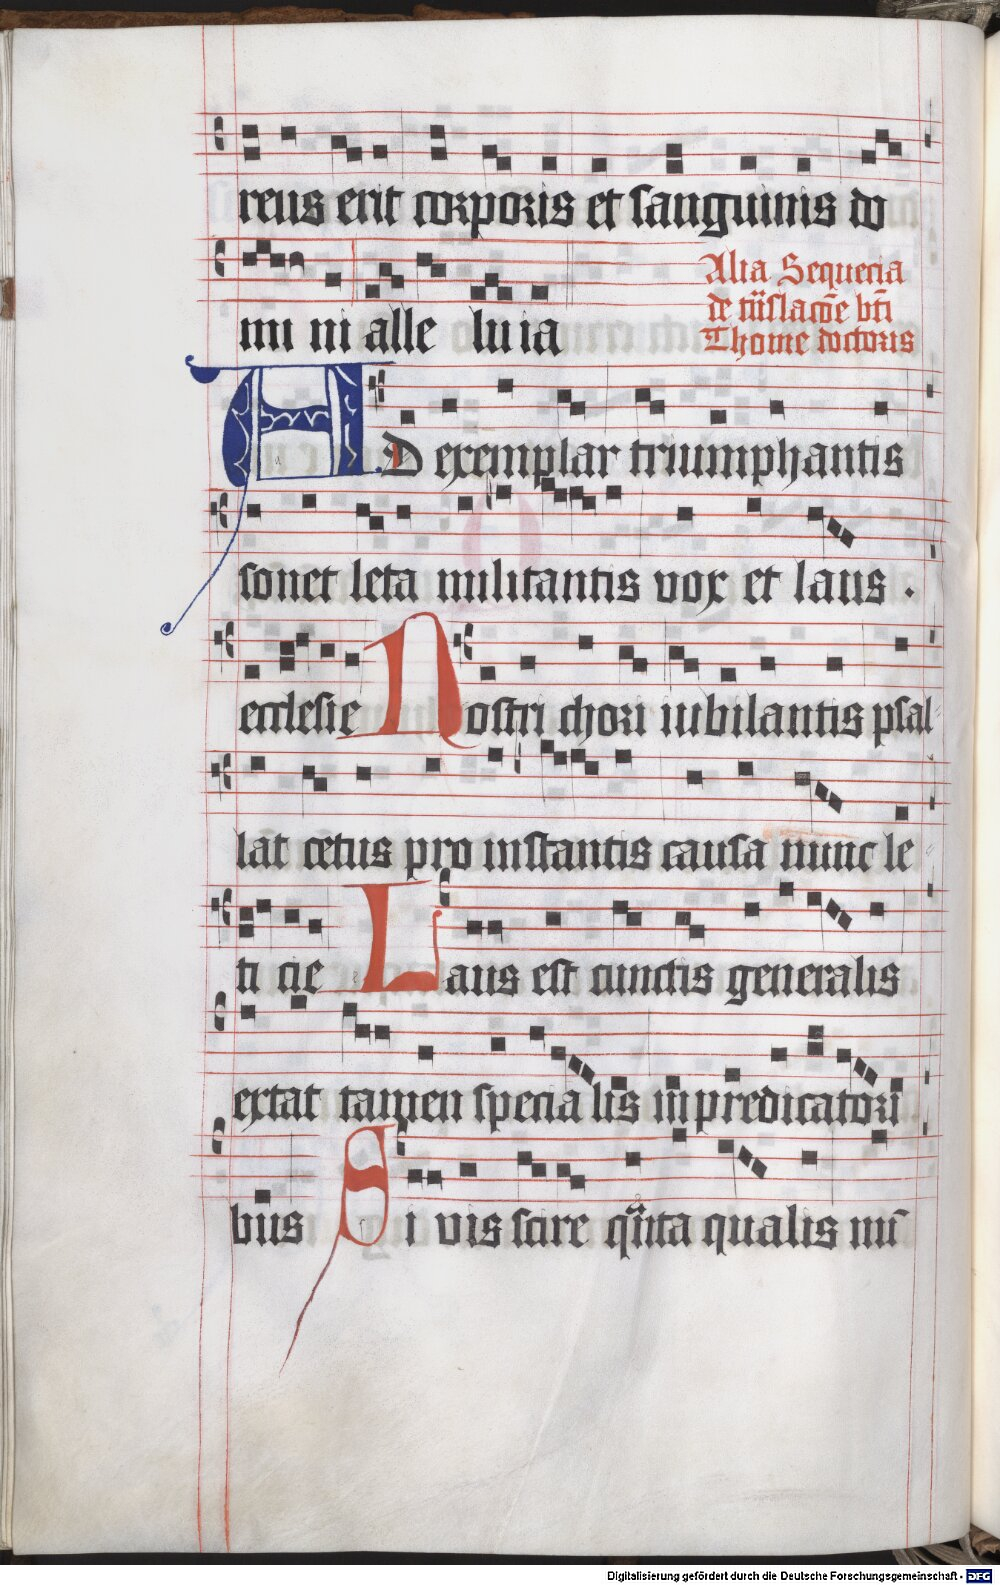 reus erit corporis et sanguinis do
mi ni alle lu ia
Alia Sequecia
de trãslacõe bti
Thome doctoris
AD exemplar triumphantis
sonet leta militantis vox et laus .
ecclesie Nostri chori iubilantis psal
lat cetus pro instantis causa nunc le
ti cie Laus est cunctis generalis
extat tamen specia lis in predicatori
bus Si vis scire quãta qualis nu
Digitalisierung gefördert durch die Deutsche Forschungsgemeinschaft - DFG